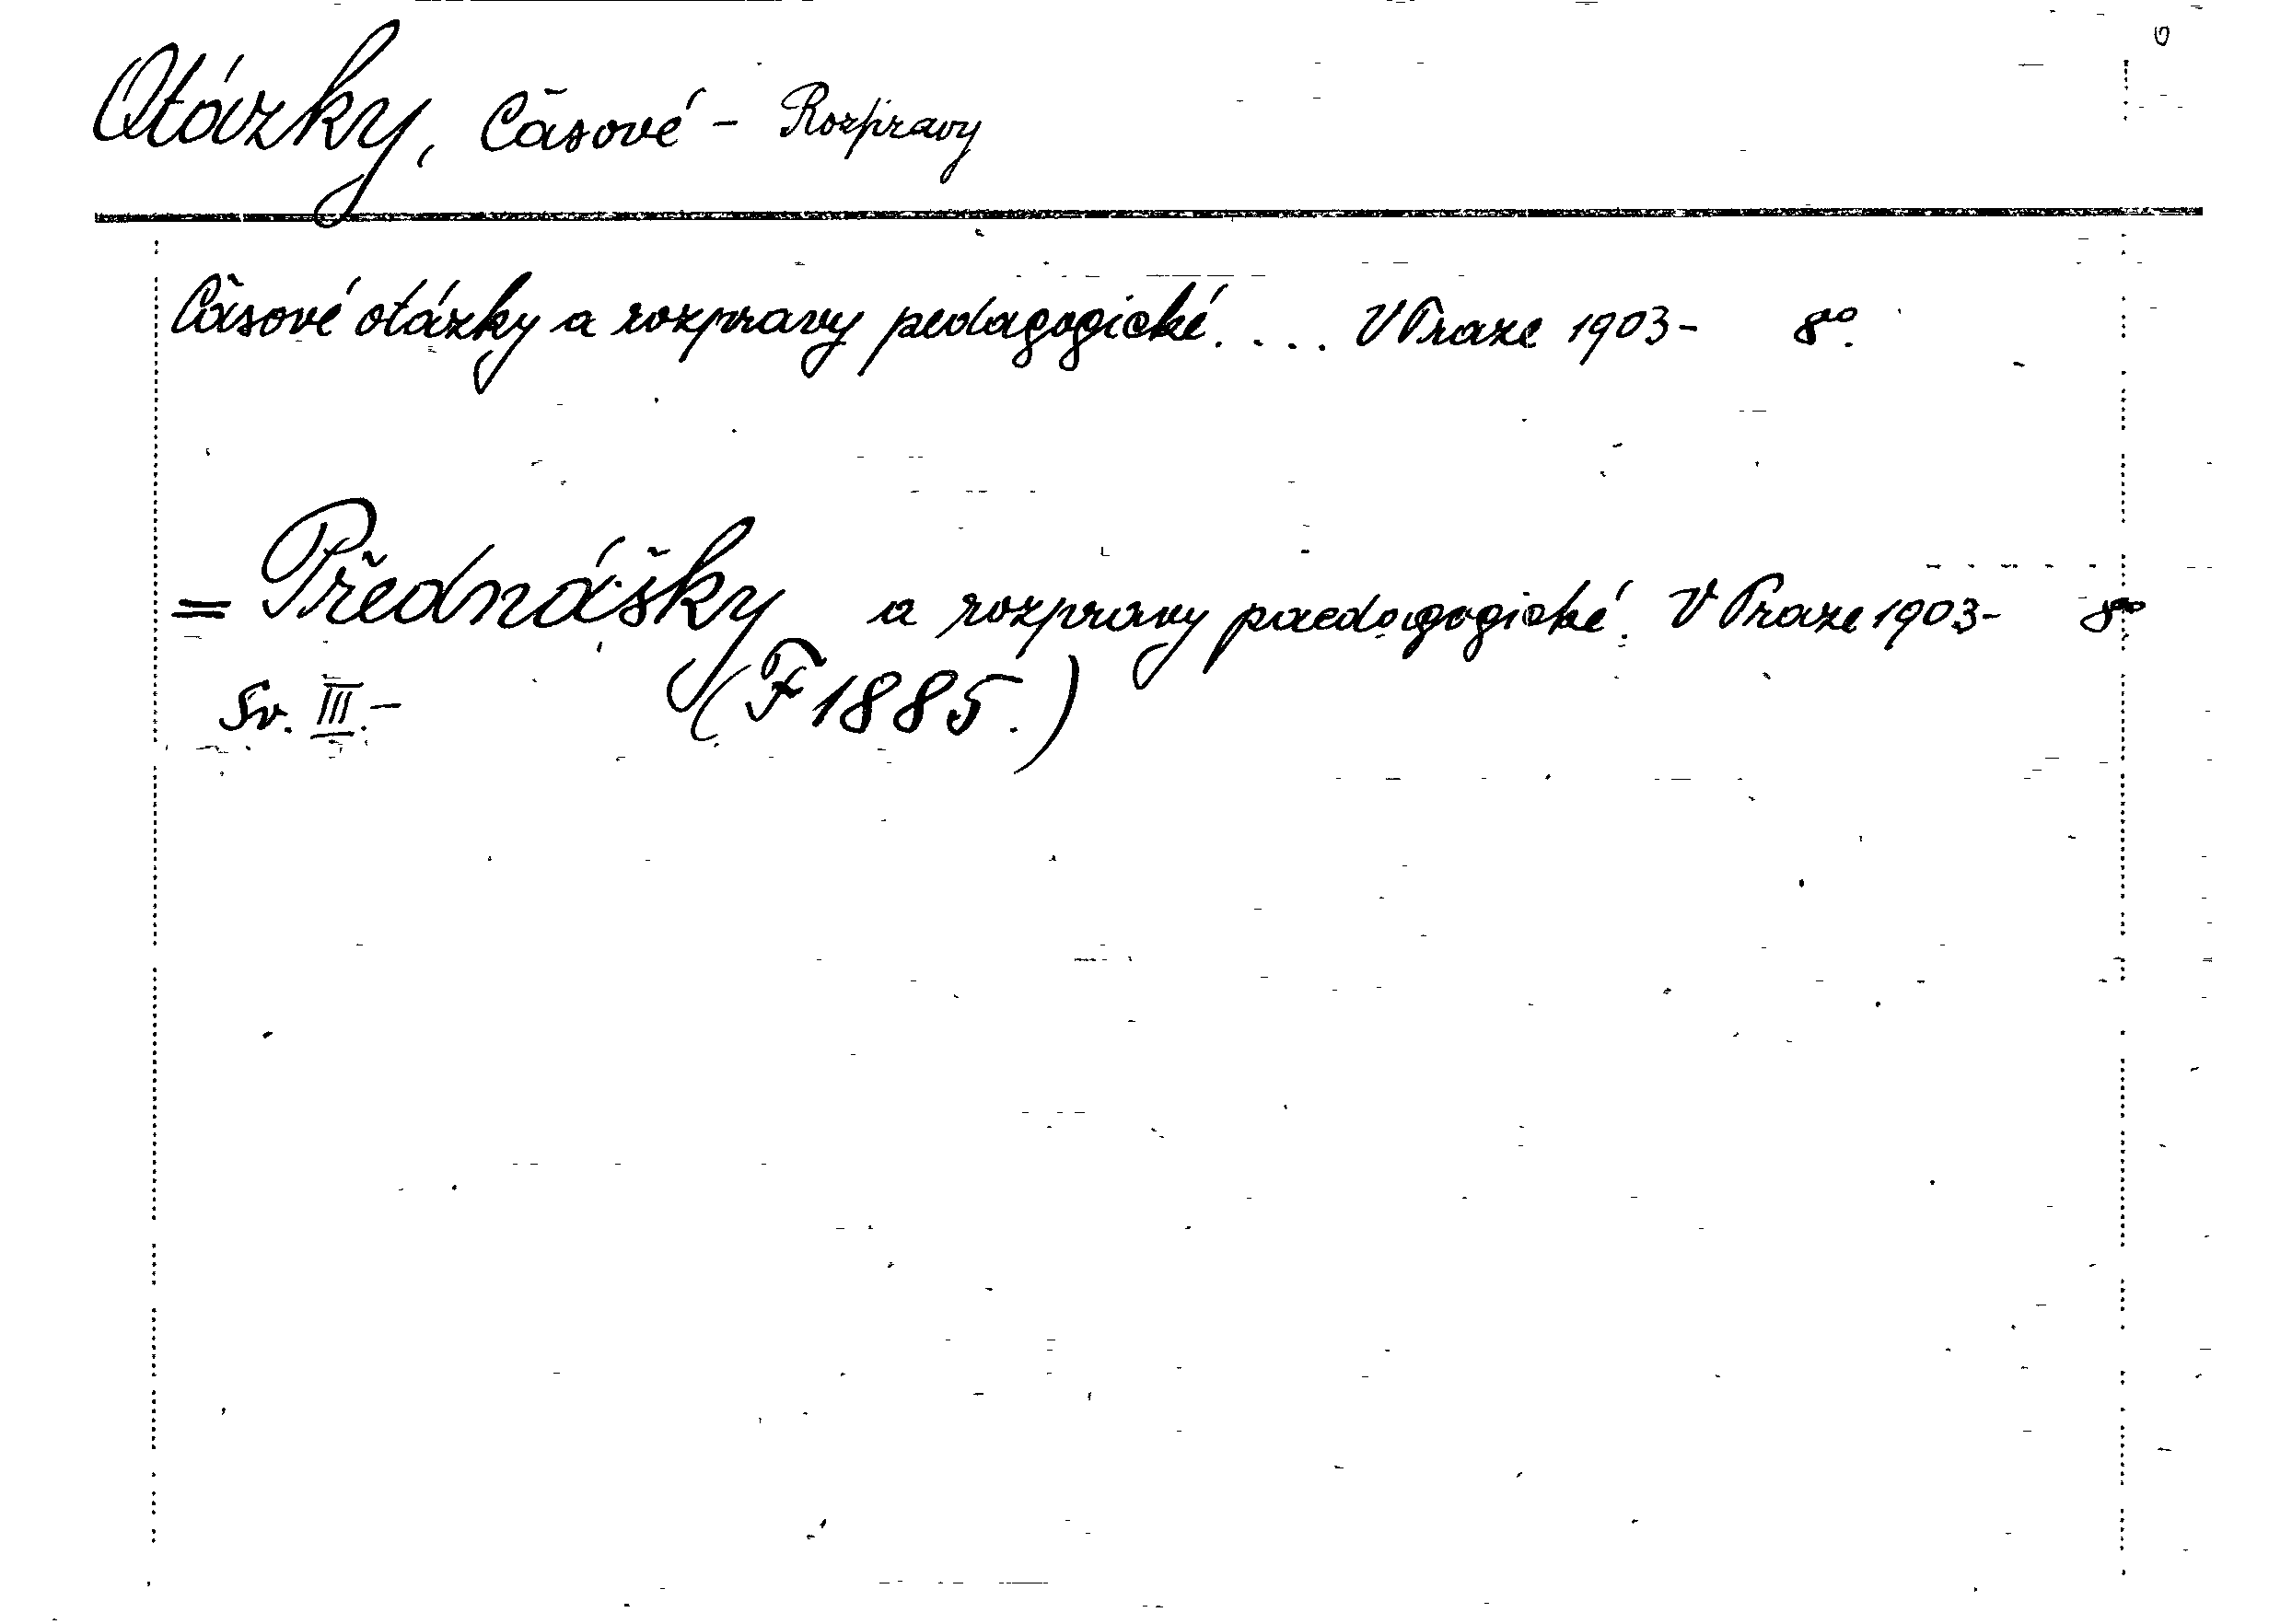 Otázky, Časové - Rozpravy
Časové otázky a rozpravy pedagogické. . . . V Praze 1903- 8°.
= Přednášky a rozpravy paedagogické. V Praze 1903- 8°
Sv. III.- (F 1885.)